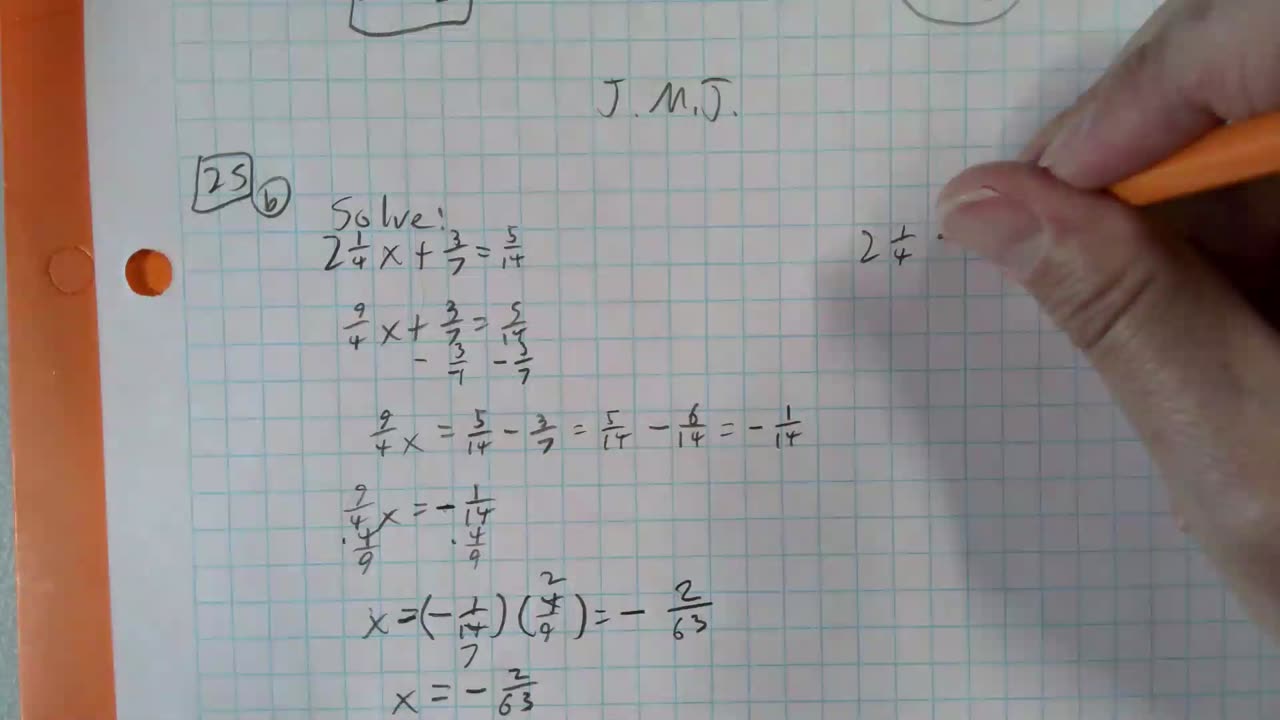 J.M.J.
25 b
Solve:
2 1/4 x + 3/7 = 5/14
9/4 x + 3/7 = 5/14
- 3/7 - 3/7
9/4 x = 5/14 - 3/7 = 5/14 - 6/14 = - 1/14
9/4 x = - 1/14
· 4/9 · 4/9
x = (- 1/14) (4/9) = - 2/63
2
7
x = - 2/63
2 1/4 ·